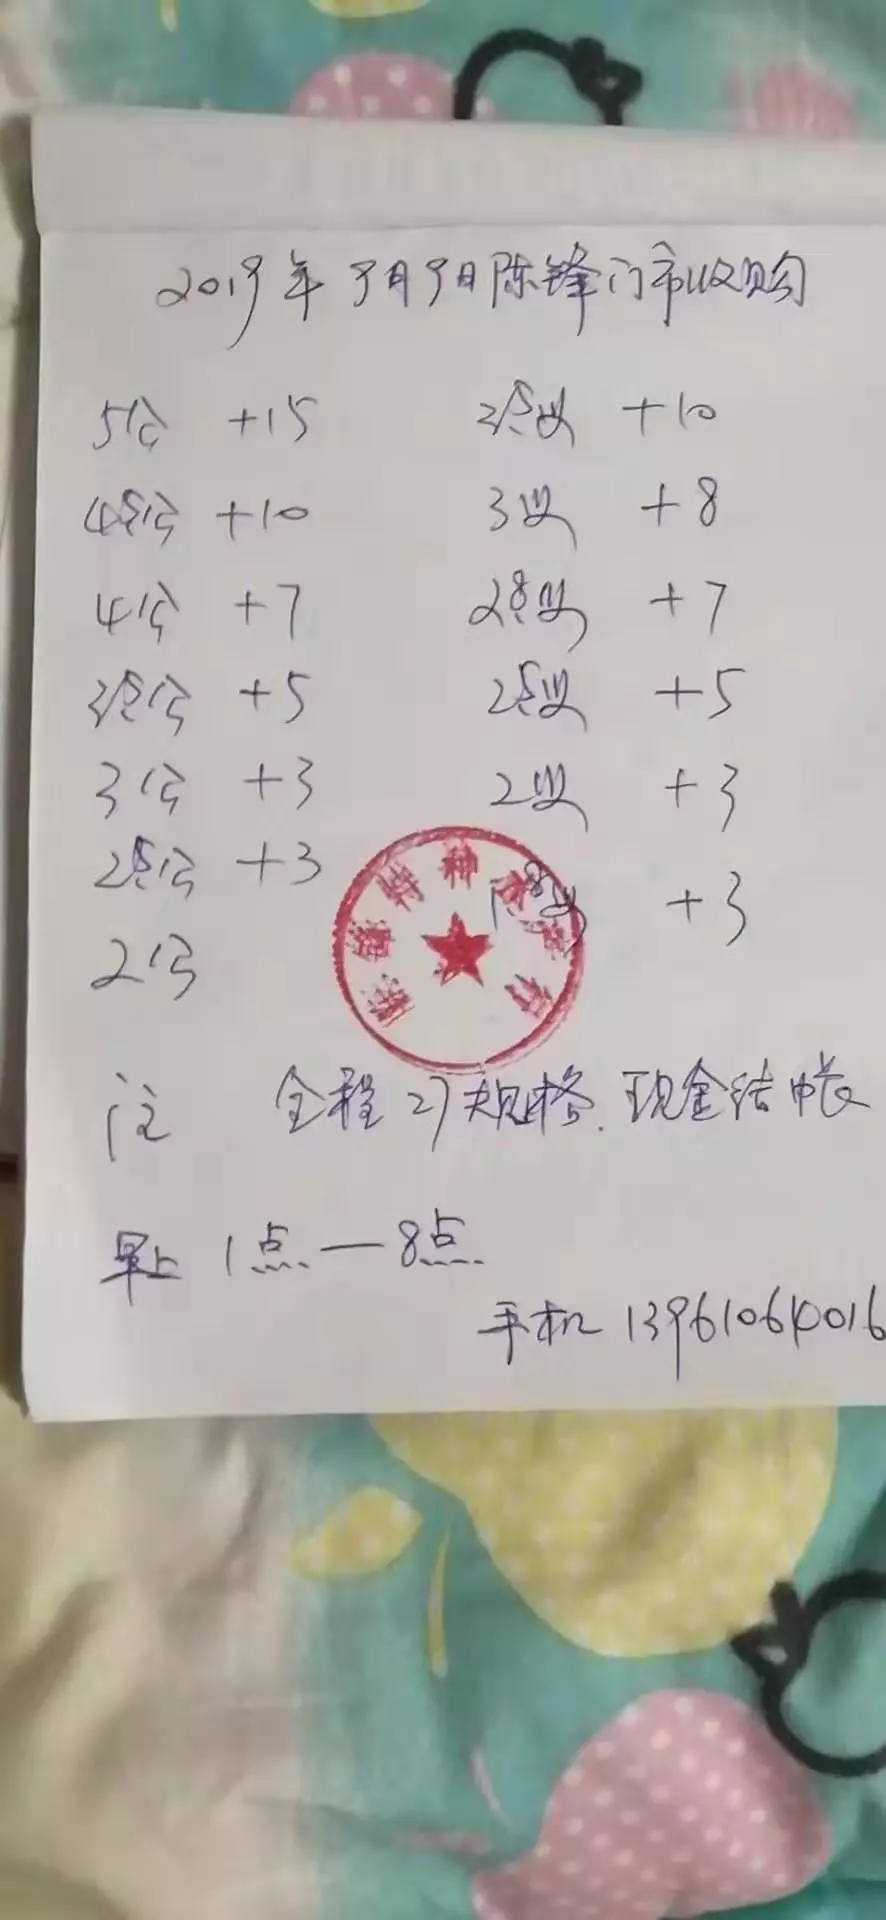 2019年9月9日陈锋门市收购
5公 +15 35母 +10
45公 +10 3母 +8
4公 +7 28母 +7
35公 +5 25母 +5
3公 +3 2母 +3
25公 +3 18母 +3
2公
特种水产行
注 全程 规格.现金结帐
早上 1点—8点
手机 13961064016